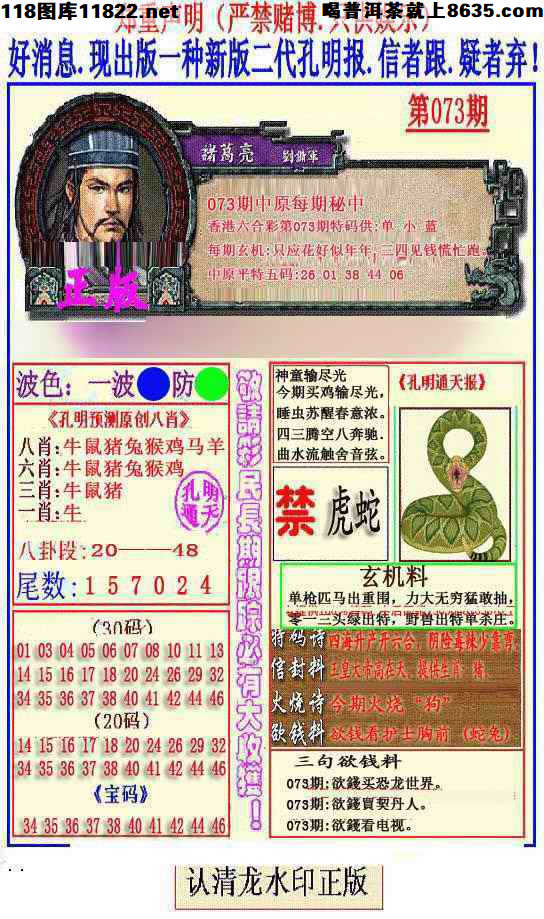 118图库11822.net
喝普洱茶就上8635.com
郑重声明(严禁赌博.只供娱乐)
好消息.现出版一种新版二代孔明报.信者跟.疑者弃!
第073期
諸葛亮 劉備軍
073期中原每期秘中
香港六合彩第073期特码供:单 小 蓝
每期玄机:只应花好似年年,二四见钱慌忙跑。
中原平特五码:26 01 38 44 06
正版
波色: 一波 防
《孔明预测原创八肖》
八肖:牛鼠猪兔猴鸡马羊
六肖:牛鼠猪兔猴鸡
三肖:牛鼠猪
一肖:牛
孔明通天
八卦段:20——48
尾数:157024
(30码)
01 03 04 05 06 07 08 10 11 13
14 15 16 17 18 20 24 26 29 32
34 35 36 37 38 40 41 42 44 46
(20码)
14 15 16 17 18 20 24 26 29 32
34 35 36 37 38 40 41 42 44 46
《宝码》
34 35 36 37 38 40 41 42 44 46
敬請彩民長期跟踪必有大收獲!
神童输尽光
今期买鸡输尽光,
睡虫苏醒春意浓。
四三腾空八奔驰.
曲水流触舍音弦。
《孔明通天报》
禁 虎蛇
玄机料
单枪匹马出重围,力大无穷猛敢抽,
零一二头绿出特,野兽出特单杀庄。
特码诗 四海升产开六合,阴险毒辣少靠旁,
信封料 玉皇大帝高在天、提怯生肖:猪、
火烧诗 今期火烧“狗”
欲钱料 欲钱看护士胸前(蛇兔)
三句欲钱料
073期:欲錢买恐龙世界。
073期:欲錢買契丹人。
073期:欲錢看电视。
认清龙水印正版